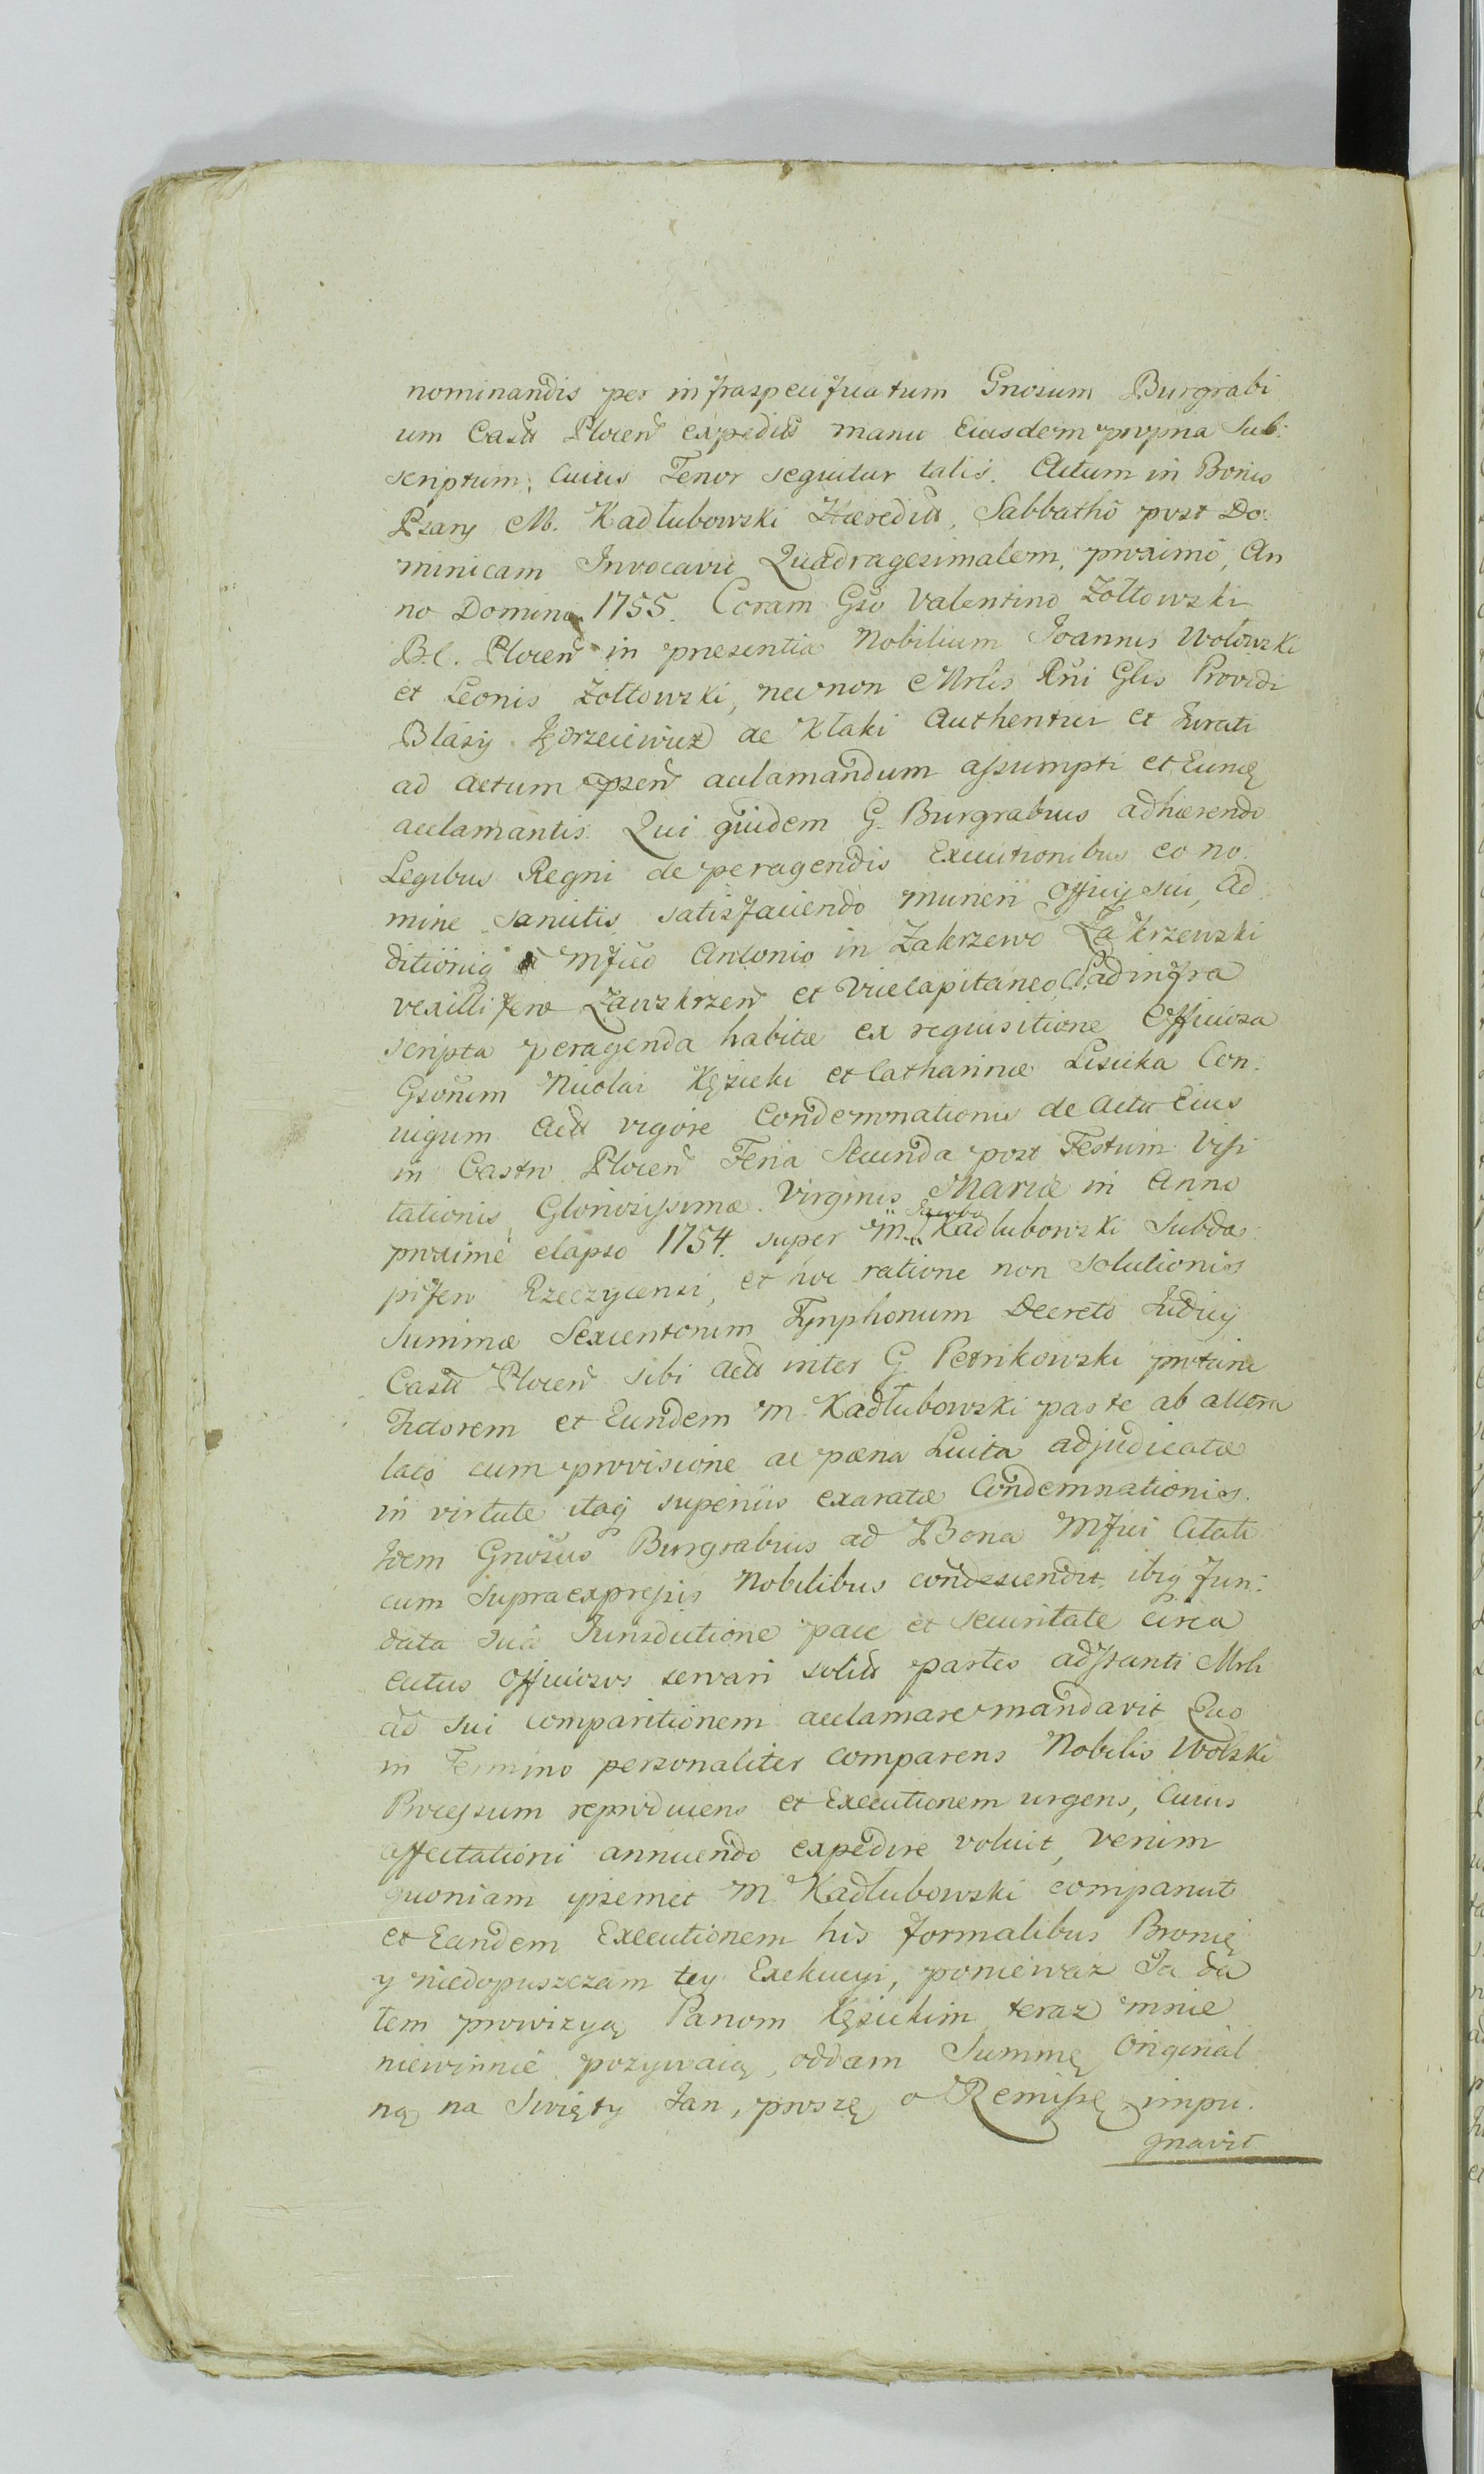 nominandis per infraspecificatum Gnosum Burgrabi
um Castr Plocen expedits manu Eiusdem propria Sub:
scriptum, Cuius Tenor sequitur talis. Actum in Bonis
Psary M. Kadłubowski Hæredits, Sabbatho post Do:
minicam Invocavit Quadragesimalem, proximo, An
no Domino 1755. Coram Gso Valentino Żółtowski
B.C. Plocen in præsentia Nobilium Joannis Wołowski
et Leonis Żółtowski, necnon Mrlis Rni Glis Providi
Blasij Jędrzeiewicz de Kłaki Authentici et Jurati
ad actum psen acclamandum assumpti et Eundę
acclamantis. Qui quidem G. Burgrabius adhærendo
Legibus Regni de peragendis Executionibus eo no:
mine sancitis satisfaciendo muneri Officij sui, ad
ditioniq a Mfico Antonio in Zakrzewo Zakrzewski
vexillifero Zawskrzen et Vicecapitaneo, ad infra
scripta peragenda habitæ ex requisitione Officiosa
Gsorum Nicolai Kęsicki et Catharinæ Lisicka Con:
iugum Actt vigore Condemnationis de Actu Eius
in Castro Plocen Feria Secunda post Festum Visi
tationis Gloriosissimæ Virginis Mariæ in Anno
proxime elapso 1754. super M. Jacobo Kadłubowski Subda
pifero Rzeczycensi, et hoc ratione non Solutionis
Summæ Sexcentorum Tynphonum Decreto Judicij
Castr Plocen sibi Actt inter G Petrikowski protunc
Actorem et Eundem M. Kadłubowski parte ab altera
lato cum provisione ac pœna Lucita adjudicatæ
in virtute itaq superius exaratæ Condemnationis.
Idem Gnosus Burgrabius ad Bona Mfici Citati
cum supraexpressis Nobilibus condescendit, ibiq fun:
data sua Jurisdictione pace et securitate circa
Actus Officiosos servari solits partes adstanti Mrli
ad sui comparitionem acclamare mandavit Quo
in Termino personaliter comparens Nobilis Wolski
Processum reproducens et Executionem urgens, Cuius
affectationi annuendo expedire voluit, Verum
quoniam ipsemet M. Kadłubowski comparuit
et Eandem Executionem his formalibus Bronię
y niedopuszczam tey Exekucyi, ponieważ Ja da
łem prowizyą Panom Kęsickim teraz mnie
niewinnie pozywaią, oddam Summę Original
ną na Swięty Jan, proszę o Remissę, impu:
gnavit